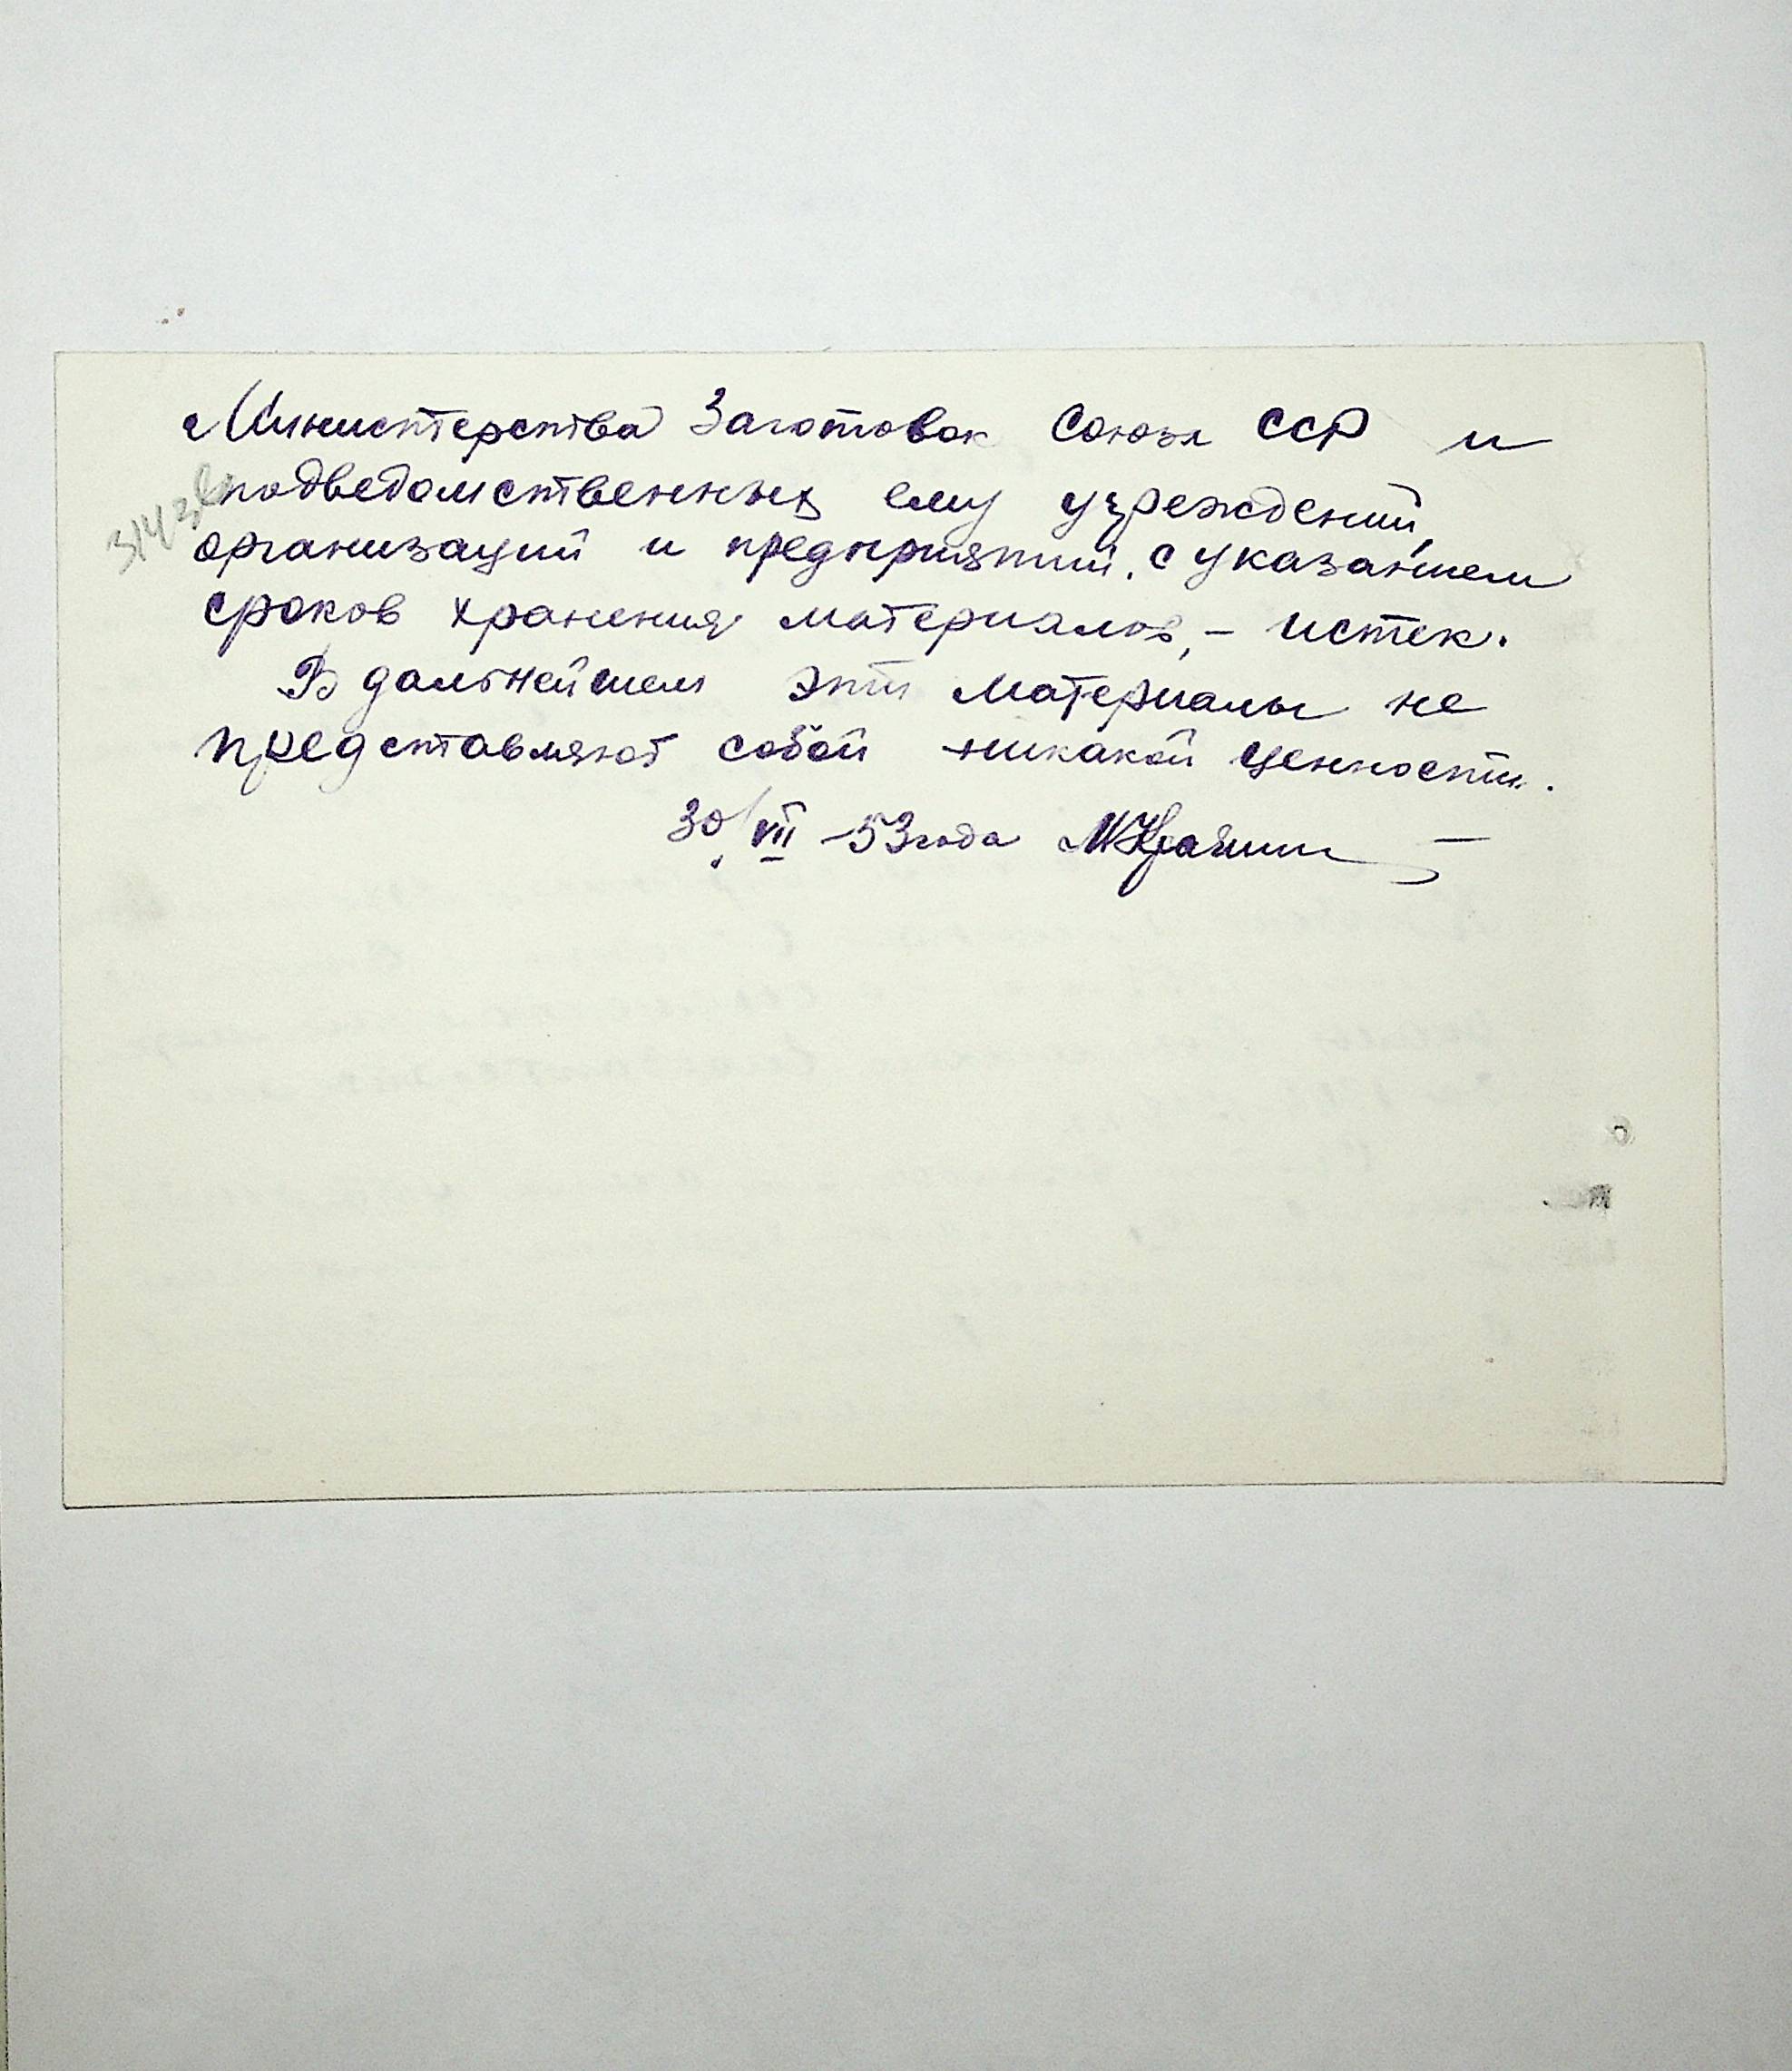 Министерства Заготовок Союза ССР и
подведомственных ему учреждений,
организаций и предприятий, с указанием
сроков хранения материалов, – истек.
В дальнейшем эти материалы не
представляют собой никакой ценности.
30/VII –53 года